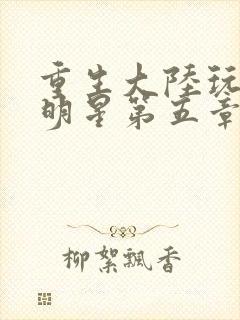 重生大陸玩
明星第五章
柳絮飄香